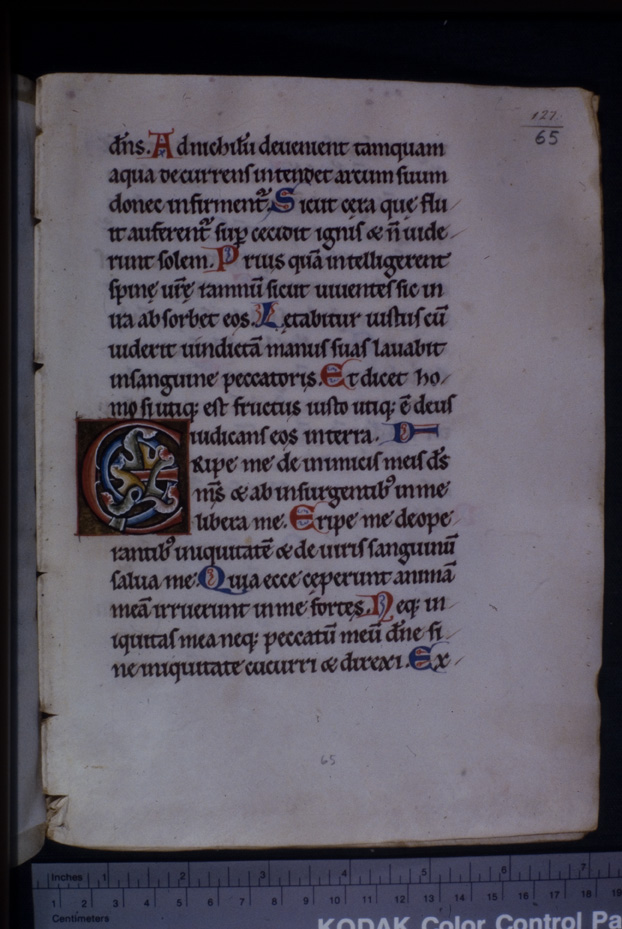 127
65
dn̄s. Ad nichilū devenient tamquam
aqua decurrens intendet arcum suum
donec infirment᷑. Sicut cera que flu
it auferent᷑ sup̱ cecidit ignis & n̄ vide
runt solem. Prius quā intelligerent
spinę vr̄ę ramnū sicut viventes sic in
ira absorbet eos. Letabitur iustus cū
viderit vindictā manus suas lavabit
in sanguine peccatoris. Et dicet ho
mo si utiq; est fructus iusto utiq; ē deus
iudicans eos in terra. D
ERipe me de inimicis meis ds̄
ms̄ & ab insurgentibꝰ in me
libera me. Eripe me de ope
rantibꝰ iniquitatē & de viris sanguinū
salva me. Quia ecce ceperunt animā
meā irruerunt in me fortes. Neq; in
iquitas mea neq; peccatū meū dn̄e si
ne iniquitate cucurri & direxi. Ex
65
Inches 1 2 3 4 5 6 7
1 2 3 4 5 6 7 8 9 10 11 12 13 14 15 16 17 18 19
Centimeters
KODAK Color Control Pa